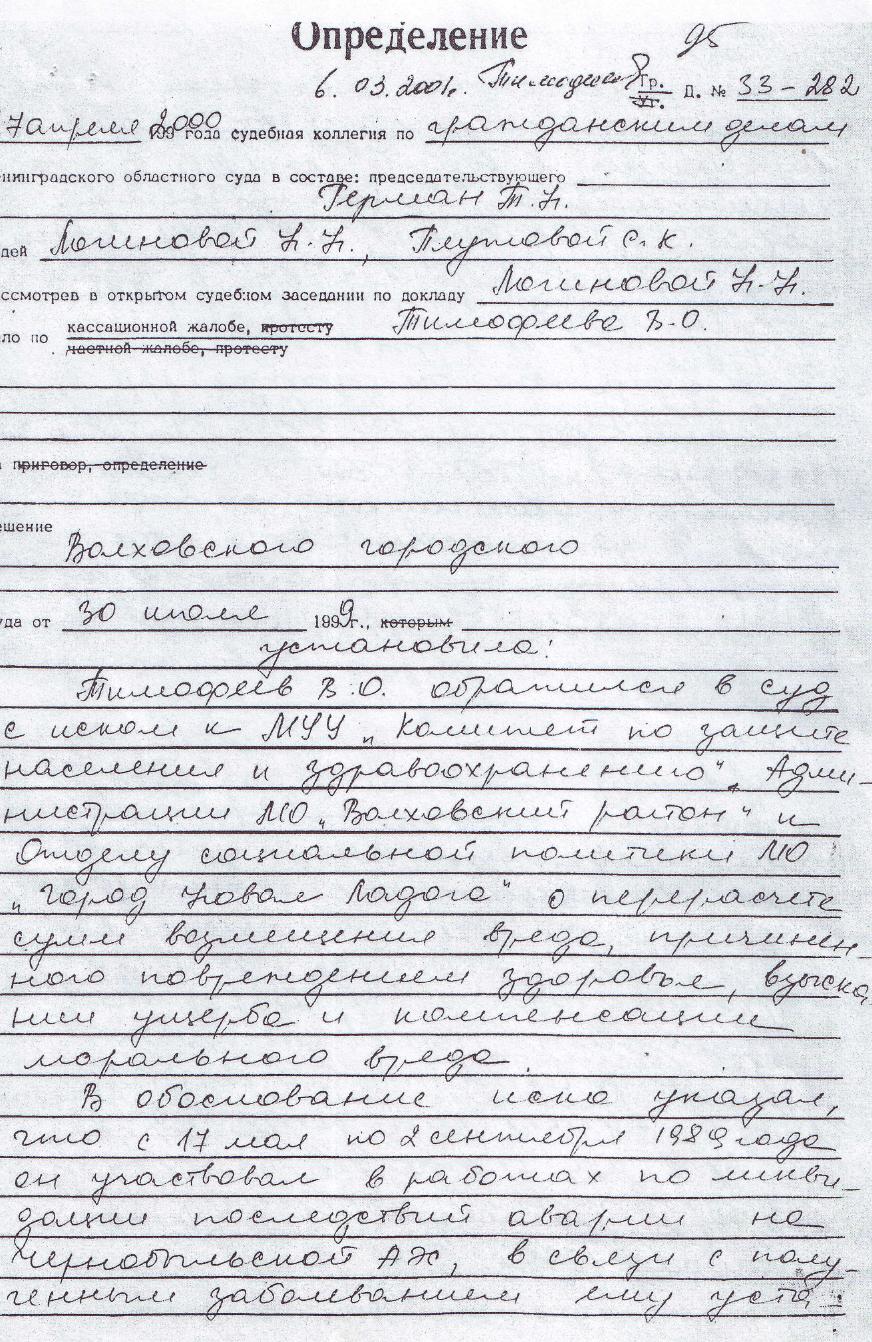 Определение 95
6. 03. 2001г. Гр. Д. № 33 - 282
Уг.
7 апреля 2000 199 года судебная коллегия по гражданским делам
нинградского областного суда в составе: председательствующего
Герман Т. Н.
дей Логиновой Н. Н., С. К.
ссмотрев в открытом судебном заседании по докладу Логиновой Н. Н.
ло по кассационной жалобе, протесту Тимофеева В. О.
частной жалобе, протесту
приговор, определение
ешение
Волховского городского
уда от 30 июля 1999г., которым
установила:
Тимофеев В. О. обратился в суд
с иском к МУУ „Комитет по защите
населения и здравоохранению", Адми-
нистрации МО „Волховский район" и
Отделу социальной политики МО
„Город Новая Ладога" о перерасчете
сумм возмещения вреда, причинен-
ного повреждением здоровья, взыска
нии ущерба и компенсации
морального вреда.
В обоснование иска указал,
что с 17 мая по 2 сентября 1989 года
он участвовал в работах по ликви-
дации последствий аварии на
Чернобыльской АЭС, в связи с полу-
ченным заболеванием ему уста